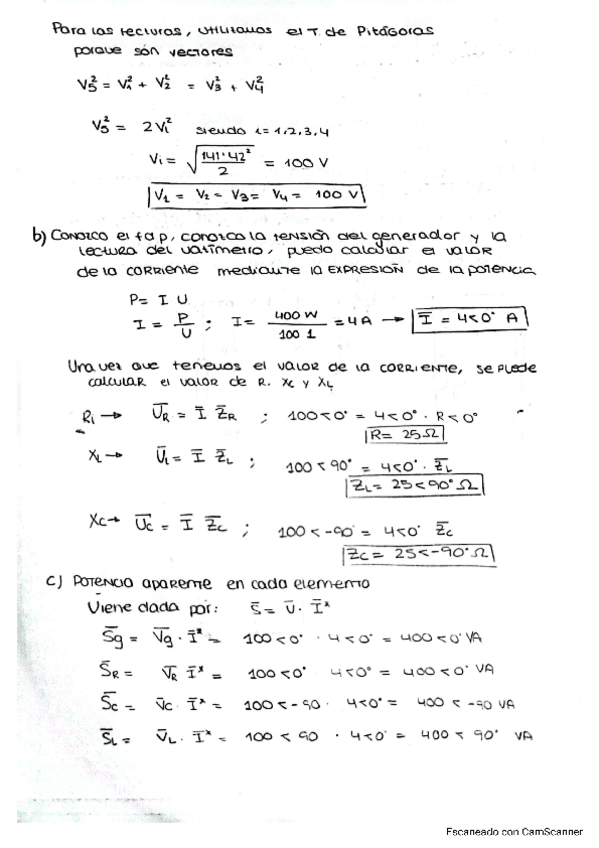 Para las lecturas, utilizamos el T. de Pitágoras
porque són vectores
V5² = V1² + V2² = V3² + V4²
V5² = 2Vi² siendo i=1,2,3,4
Vi = √(141'42² / 2) = 100 V
V1 = V2 = V3 = V4 = 100 V
b) CONOZCO el fdp, conozco la tensión del generador y la
lectura del vatímetro, puedo calcular el valor
de la CORRIENTE mediante la EXPRESIÓN de la potencia
P= I U
I = P/U ; I= 400 W / 100 1 = 4A → I = 4<0° A
Una vez que tenemos el valor de la CORRIENTE, se puede
calcular el valor de R. Xc y XL
Ri → UR = I ZR ; 100<0° = 4<0° · R<0°
R= 25Ω
XL → UL = I ZL ; 100<90° = 4<0° · ZL
ZL = 25<90° Ω
Xc → UC = I ZC ; 100<-90° = 4<0° ZC
ZC = 25<-90° Ω
c) POTENCIA aparente en cada elemento
Viene dada por: S = U · I*
Sg = Vg · I* = 100<0° · 4<0° = 400<0° VA
SR = VR I* = 100<0° 4<0° = 400<0° VA
SC = VC · I* = 100<-90 · 4<0° = 400<-90 VA
SL = VL · I* = 100<90 · 4<0° = 400<90° VA
Escaneado con CamScanner